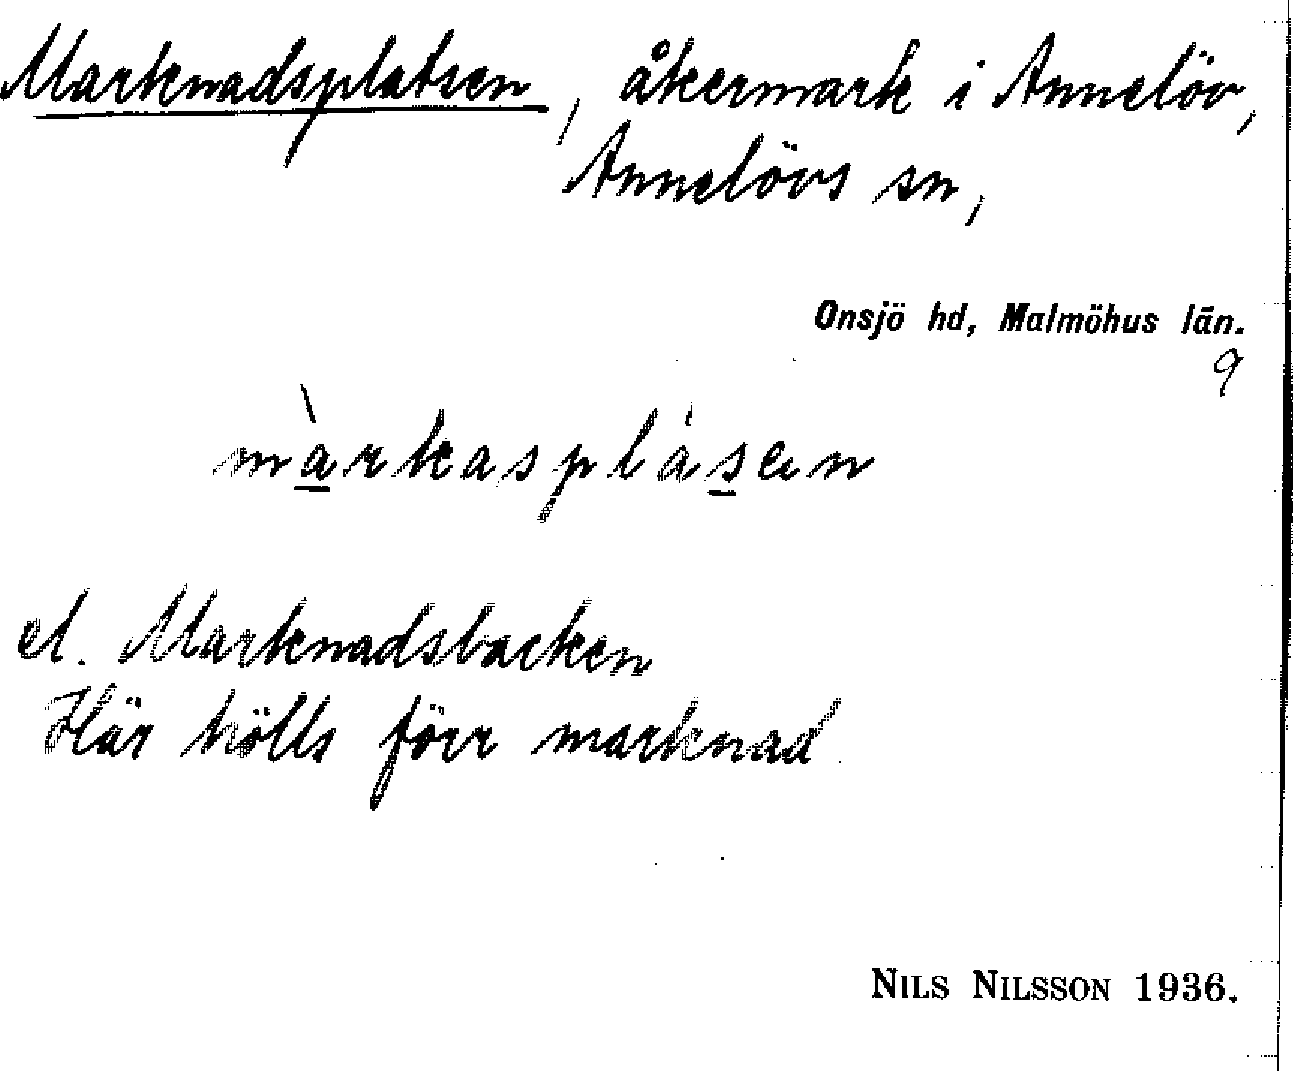 Marknadsplatsen, åkermark i Annelöv,
Annelövs sn,
Onsjö hd, Malmöhus län.
9
màrkasplásen
el. Marknadsbacken
Här hölls förr marknad
NILS NILSSON 1936.